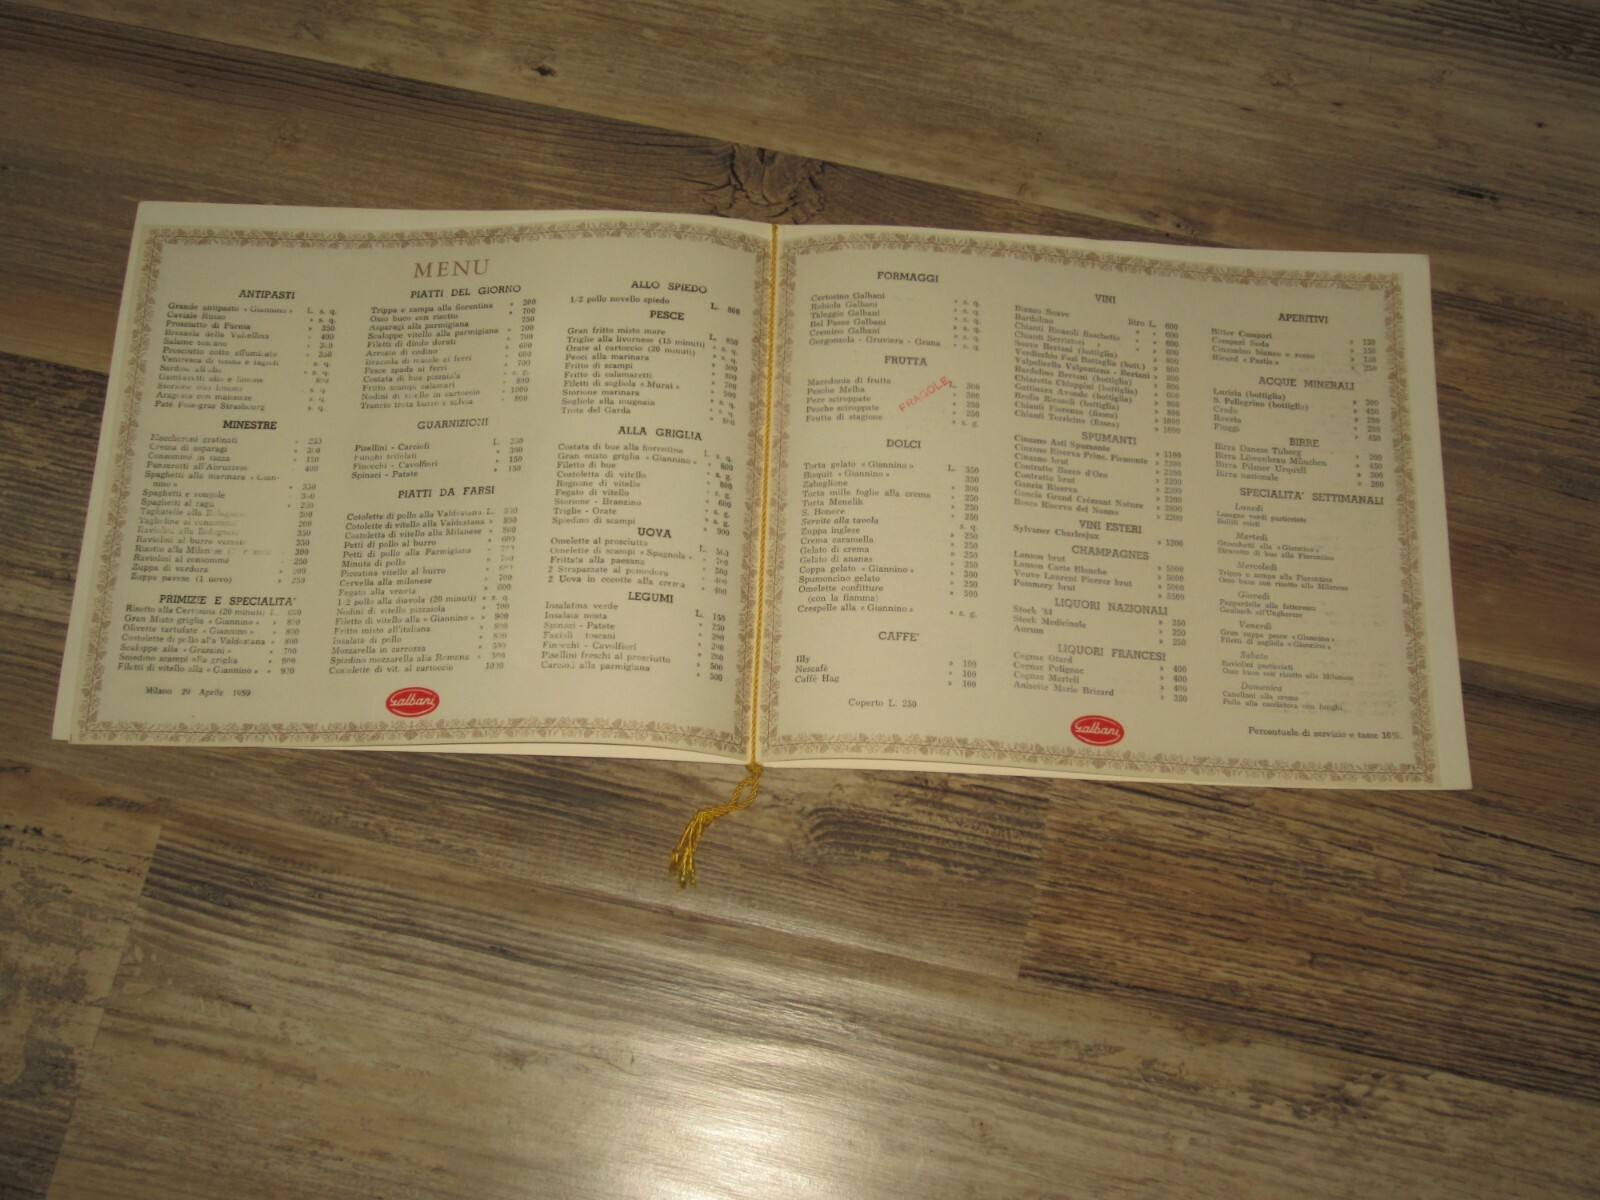 MENU
ANTIPASTI
Grande antipasto «Giannino» L. s. q.
Caviale Russo » s. q.
Prosciutto di Parma » 350
Bresaola della Valtellina » 400
Salame toscano
Prosciutto cotto affumicato
Sardou all'olio
Gamberetti olio e limone
Storione olio limone
Aragosta con maionese
Paté Foie-gras Strasbourg » s. q.
MINESTRE
Maccheroni gratinati » 250
Crema di asparagi
Consommé in tazza
Panzerotti all'Abruzzese 400
Spaghetti alla marinara «Gian-
nino» » 350
Spaghetti e vongole
Spaghetti al ragù
Tagliatelle alla Bologna
Tagliolini al consommé
Ravioli alla Bolognese 350
Ravioli al burro 350
Risotto alla Milanese 300
Ravioli al consommé » 250
Zuppa di verdura
Zuppa pavese (1 uovo) » 250
PRIMIZIE E SPECIALITA'
Risotto alla Certosina (20 minuti) L.
Gran Misto griglia «Giannino» »
Olivette tartufate «Giannino» » 800
Costolette di pollo alla Valdostana » 800
Scaloppe alla «Grassini» » 700
Spiedino scampi alla griglia » 900
Filetti di vitello alla «Giannino» » 900
Milano 29 Aprile 1959
PIATTI DEL GIORNO
Trippa e zampa alla fiorentina » 500
Osso buco con risotto » 700
Asparagi alla parmigiana 750
Scaloppe vitello alla parmigiana » 700
Filetti di dindo dorati » 700
Arrosto di codino » 600
Pesce spada ai ferri » 700
Costata di bue pizzaiola
Fritto scampi calamari » 800
Nodini di vitello in cartoccio » 1000
Trancio trota burro e salvia » 800
GUARNIZIONI
Pisellini - Carciofi L. 250
Funghi trifolati » 300
Finocchi - Cavolfiori » 150
Spinaci - Patate » 150
PIATTI DA FARSI
Cotolette di pollo alla Valdostana L.
Cotolette di vitello alla Valdostana » 800
Costoletta di vitello alla Milanese » 800
Petti di pollo al burro » 600
Petti di pollo alla Parmigiana
Minuta di pollo
Piccatina vitello al burro
Cervella alla milanese » 700
Fegato alla veneta » 600
1/2 pollo alla diavola (20 minuti) » s. q.
Nodini di vitello pizzaiola » 700
Filetto di vitello alla «Giannino» » 900
Fritto misto all'italiana » 800
Insalata di pollo
Mozzarella in carrozza » 500
Spiedino mozzarella alla Romana » 500
Costolette di vit. al cartoccio 1000
Galbani
ALLO SPIEDO
1/2 pollo novello spiedo L. 800
PESCE
Gran fritto misto mare L. 850
Triglie alla livornese (15 minuti) » s. q.
Orate al cartoccio (20 minuti) » s. q.
Pesci alla marinara » s. q.
Fritto di scampi
Fritto di calamaretti
Filetti di sogliola «Murat»
Storione marinara
Sogliole alla mugnaia » s. q.
Trota del Garda » 800
ALLA GRIGLIA
Costata di bue alla fiorentina L. s. q.
Gran misto griglia «Giannino» » 800
Filetto di bue » 800
Costoletta di vitello
Rognone di vitello
Fegato di vitello » 600
Storione - Branzino » s. q.
Triglie - Orate » s. q.
Spiedino di scampi » 900
UOVA
Omelette al prosciutto L.
Omelette di scampi «Spagnola»
Frittata alla paesana » 500
2 Strapazzate al pomodoro » 400
2 Uova in cocotte alla crema » 400
LEGUMI
Insalatina verde L. 150
Insalata mista » 250
Spinaci - Patate » 200
Fagioli toscani » 200
Finocchi - Cavolfiori » 200
Pisellini freschi al prosciutto » 500
Carciofi alla parmigiana » 500
FORMAGGI
Certosino Galbani » s. q.
Robiola Galbani » s. q.
Taleggio Galbani » s. q.
Bel Paese Galbani » s. q.
Cremino Galbani » s. q.
Gorgonzola - Gruviera - Grana » s. q.
FRUTTA
Macedonia di frutta L. 300
Pesche Melba » 300
Pere sciroppate » 250
Pesche sciroppate » 250
Frutta di stagione » s. g.
FRAGOLE
DOLCI
Torta gelato «Giannino» L. 350
Bisquit «Giannino» 350
Zabaglione » 300
Torta mille foglie alla crema » 250
Torta Menelik » 250
S. Honore » 250
Servite alla tavola » 250
Zuppa inglese s. q.
Crema caramella » 250
Gelato di crema » 250
Gelato di ananas » 250
Coppa gelato «Giannino» » 300
Spumoncino gelato » 250
Omelette confitture » 500
(con la fiamma)
Crespelle alla «Giannino» » s. g.
CAFFE'
Illy » 100
Nescafè » 100
Caffè Hag » 100
Coperto L. 250
VINI
Bianco Soave litro L. 600
Bardolino » » 600
Chianti Ricasoli fiaschetto » » 600
Chianti Serristori » » 600
Soave Bertani (bottiglia) » 800
Verdicchio Fazi Battaglia (bott.) » 800
Valpolicella Valpantena - Bertani » 800
Bardolino Bertani (bottiglia) » 800
Chiaretto Chioppini (bottiglia) » 800
Gattinara Avondo (bottiglia) » 800
Brolio Ricasoli (bottiglia) » 800
Chianti Florenza (flasca) » 1000
Chianti Torricino (flasca) » 1000
SPUMANTI
Cinzano Asti Spumante » 1100
Cinzano Riserva Princ. Piemonte » 2200
Cinzano brut » 2200
Contratto Bacco d'Oro » 2200
Contratto brut » 2200
Gancia Riserva » 2200
Gancia Grand Crémant Nature » 2200
Bosca Riserva del Nonno » 2200
VINI ESTERI
Sylvaner Charlesjux » 1200
CHAMPAGNES
Lanson brut » 5000
Lanson Carte Blanche » 5000
Veuve Laurent Pierrer brut » 5000
Pommery brut » 5500
LIQUORI NAZIONALI
Stock '84 » 250
Stock Medicinale » 250
Aurum » 250
LIQUORI FRANCESI
Cognac Otard » 400
Cognac Polignac » 400
Cognac Martell » 400
Anisette Marie Brizard » 350
Galbani
APERITIVI
Bitter Campari » 150
Campari Soda » 150
Cinzanino bianco e rosso » 150
Ricard «Pastis» » 250
ACQUE MINERALI
Lurisia (bottiglia) » 200
S. Pellegrino (bottiglia)
Crodo
Recorda
Fiuggi » 450
BIRRE
Birra Danese Tuborg » 200
Birra Löwenbrau München » 450
Birra Pilsner Urquell » 300
Birra nazionale » 200
SPECIALITA' SETTIMANALI
Lunedì
Lasagne verdi pasticciate
Bolliti misti
Martedì
Gnocchetti alla «Giannino»
Stracotto di bue alla Fiorentina
Mercoledì
Trippa e zampa alla Fiorentina
Osso buco con risotto alla Milanese
Giovedì
Pappardelle alla fattoressa
Goulasch all'Ungherese
Venerdì
Gran zuppa pesce «Giannino»
Filetti di sogliola «Giannino»
Sabato
Raviolini pasticciati
Osso buco con risotto alla Milanese
Domenica
Canelloni alla crema
Pollo alla cacciatora con funghi
Percentuale di servizio e tasse 16%.